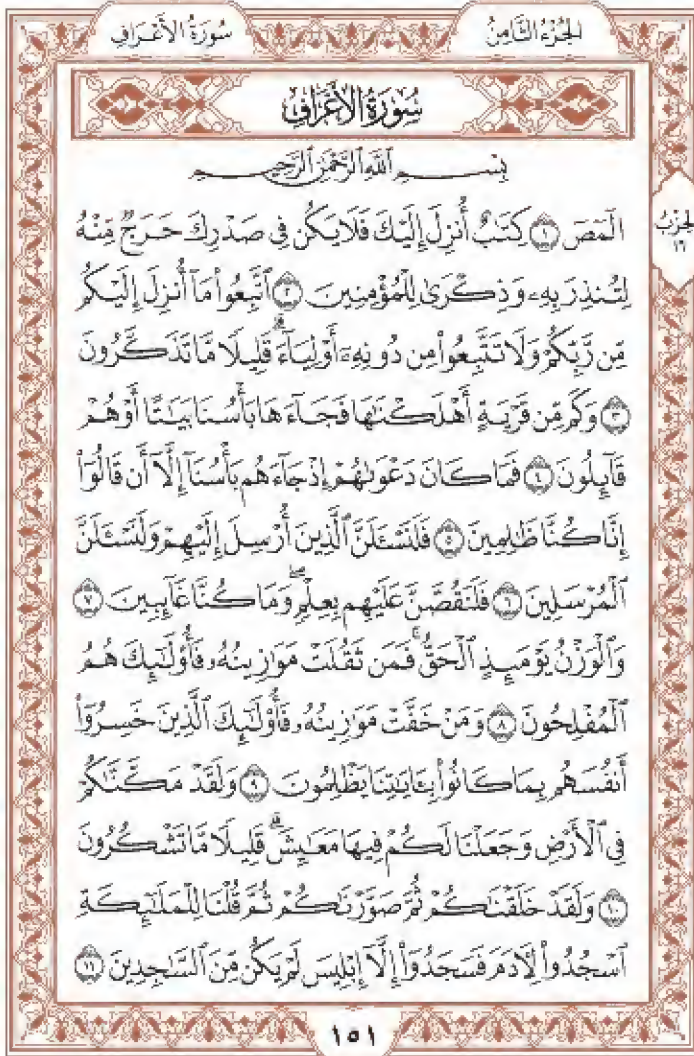 سُورَةُ الأَعْرَافِ الجُزْءُ الثَّامِنُ
سُورَةُ الأَعْرَافِ
بِسْمِ ٱللَّهِ ٱلرَّحْمَٰنِ ٱلرَّحِيمِ
الٓمٓصٓ ١ كِتَٰبٌ أُنزِلَ إِلَيْكَ فَلَا يَكُن فِي صَدْرِكَ حَرَجٌ مِّنْهُ
الحِزْبُ
١٦
لِتُنذِرَ بِهِۦ وَذِكْرَىٰ لِلْمُؤْمِنِينَ ٢ ٱتَّبِعُوا۟ مَآ أُنزِلَ إِلَيْكُم
مِّن رَّبِّكُمْ وَلَا تَتَّبِعُوا۟ مِن دُونِهِۦٓ أَوْلِيَآءَ ۗ قَلِيلًا مَّا تَذَكَّرُونَ
٣ وَكَم مِّن قَرْيَةٍ أَهْلَكْنَٰهَا فَجَآءَهَا بَأْسُنَا بَيَٰتًا أَوْ هُمْ
قَآئِلُونَ ٤ فَمَا كَانَ دَعْوَىٰهُمْ إِذْ جَآءَهُم بَأْسُنَآ إِلَّآ أَن قَالُوٓا۟
إِنَّا كُنَّا ظَٰلِمِينَ ٥ فَلَنَسْـَٔلَنَّ ٱلَّذِينَ أُرْسِلَ إِلَيْهِمْ وَلَنَسْـَٔلَنَّ
ٱلْمُرْسَلِينَ ٦ فَلَنَقُصَّنَّ عَلَيْهِم بِعِلْمٍ ۖ وَمَا كُنَّا غَآئِبِينَ ٧
وَٱلْوَزْنُ يَوْمَئِذٍ ٱلْحَقُّ ۚ فَمَن ثَقُلَتْ مَوَٰزِينُهُۥ فَأُو۟لَٰٓئِكَ هُمُ
ٱلْمُفْلِحُونَ ٨ وَمَنْ خَفَّتْ مَوَٰزِينُهُۥ فَأُو۟لَٰٓئِكَ ٱلَّذِينَ خَسِرُوٓا۟
أَنفُسَهُم بِمَا كَانُوا۟ بِـَٔايَٰتِنَا يَظْلِمُونَ ٩ وَلَقَدْ مَكَّنَّٰكُمْ
فِي ٱلْأَرْضِ وَجَعَلْنَا لَكُمْ فِيهَا مَعَٰيِشَ ۗ قَلِيلًا مَّا تَشْكُرُونَ
١٠ وَلَقَدْ خَلَقْنَٰكُمْ ثُمَّ صَوَّرْنَٰكُمْ ثُمَّ قُلْنَا لِلْمَلَٰٓئِكَةِ
ٱسْجُدُوا۟ لِـَٔادَمَ فَسَجَدُوٓا۟ إِلَّآ إِبْلِيسَ لَمْ يَكُن مِّنَ ٱلسَّٰجِدِينَ ١١
١٥١